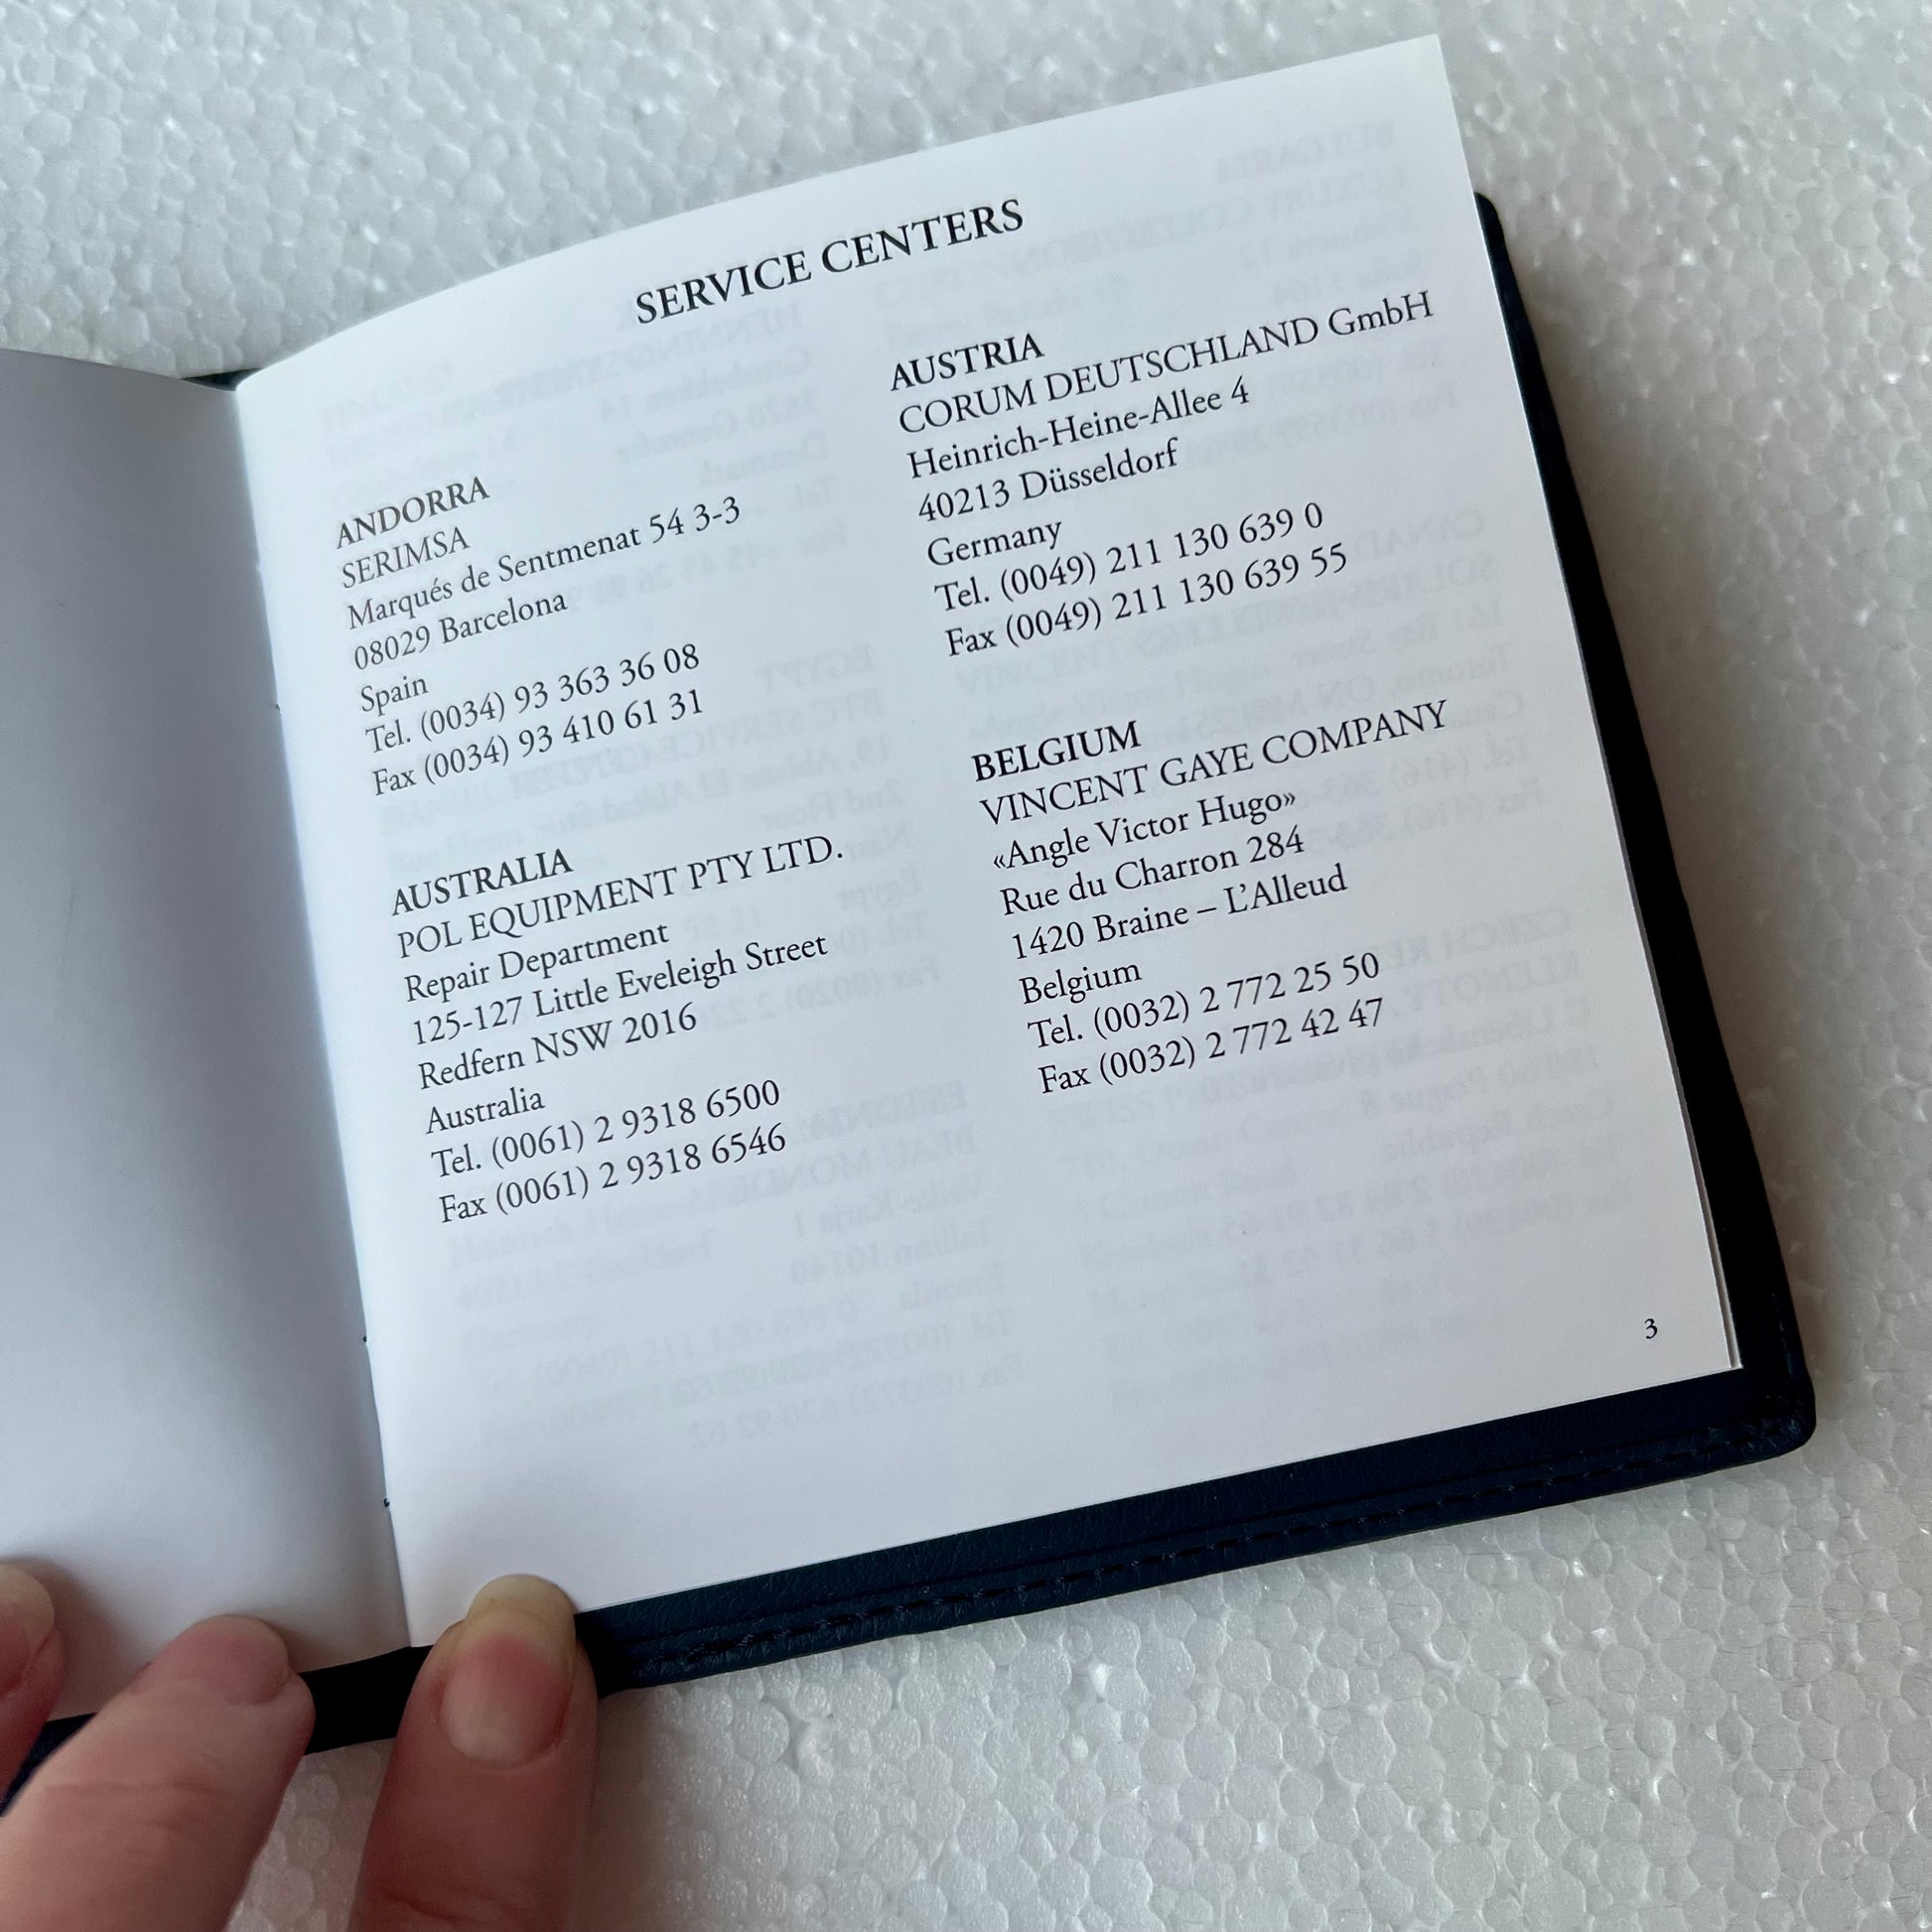 SERVICE CENTERS
ANDORRA
SERIMSA
Marqués de Sentmenat 54 3-3
08029 Barcelona
Spain
Tel. (0034) 93 363 36 08
Fax (0034) 93 410 61 31
AUSTRALIA
POL EQUIPMENT PTY LTD.
Repair Department
125-127 Little Eveleigh Street
Redfern NSW 2016
Australia
Tel. (0061) 2 9318 6500
Fax (0061) 2 9318 6546
AUSTRIA
CORUM DEUTSCHLAND GmbH
Heinrich-Heine-Allee 4
40213 Düsseldorf
Germany
Tel. (0049) 211 130 639 0
Fax (0049) 211 130 639 55
BELGIUM
VINCENT GAYE COMPANY
«Angle Victor Hugo»
Rue du Charron 284
1420 Braine – L’Alleud
Belgium
Tel. (0032) 2 772 25 50
Fax (0032) 2 772 42 47
3